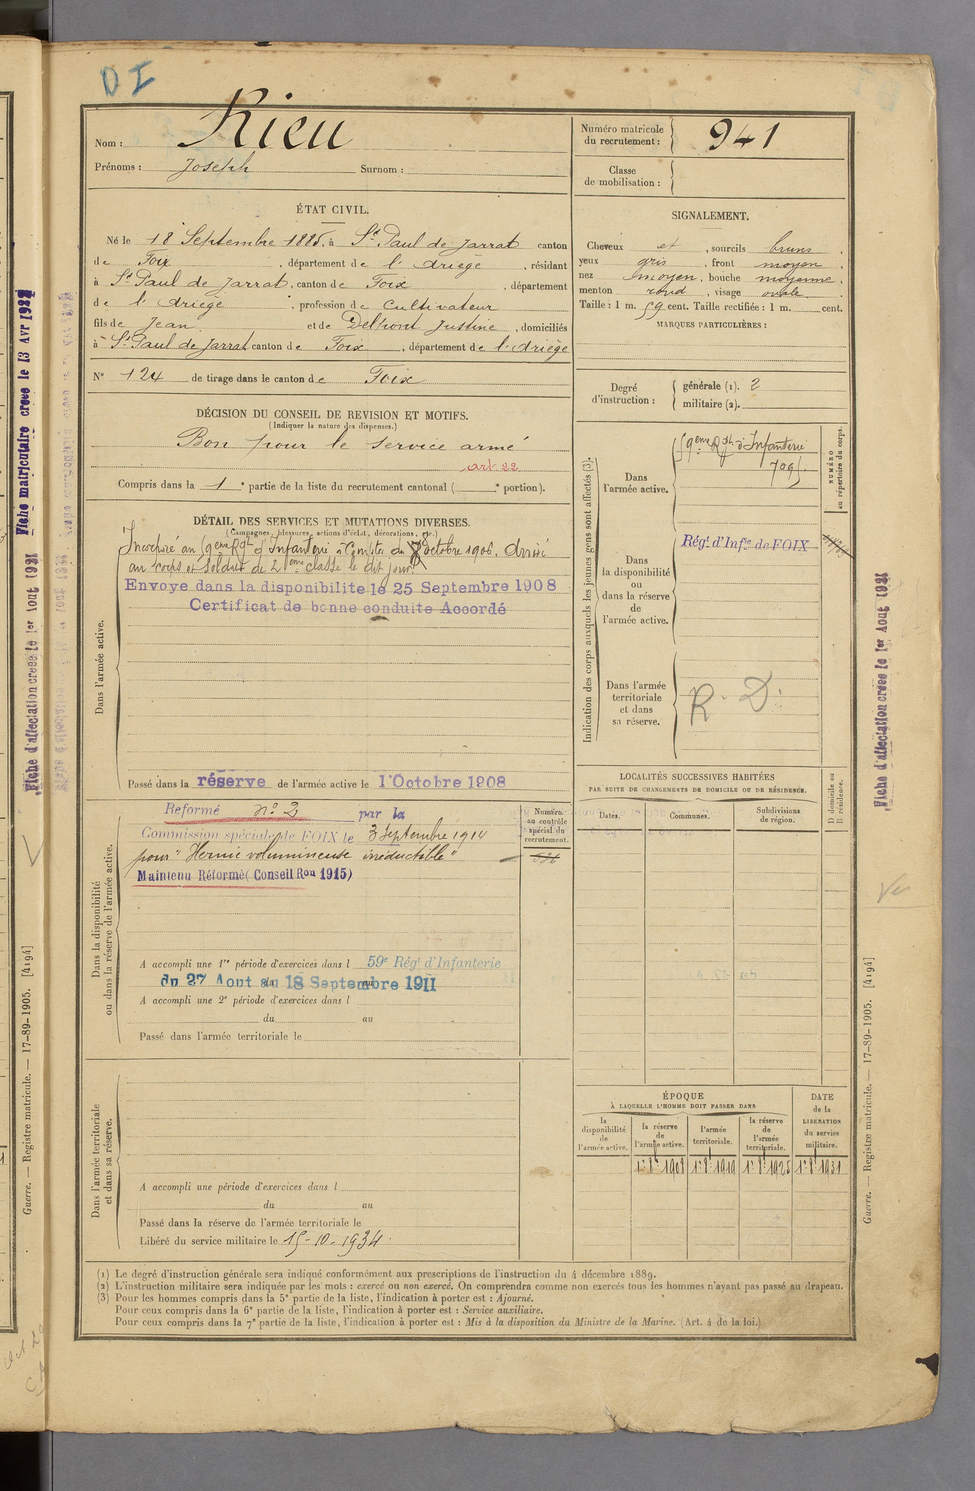 D I
Nom : Rieu
Prénoms : Joseph Surnom :
Numéro matricole du recrutement : 941
Classe de mobilisation :
ÉTAT CIVIL.
Né le 18 Septembre 1885, à St Paul de Jarrat canton
de Foix, département de l'Ariège, résidant
à St Paul de Jarrat, canton de Foix, département
de l'Ariège, profession de Cultivateur
fils de Jean et de Delpont Justine, domiciliés
à St Paul de Jarrat canton de Foix, département de l'Ariège
N° 124 de tirage dans le canton de Foix
SIGNALEMENT.
Cheveux et, sourcils bruns,
yeux gris, front moyen,
nez moyen, bouche moyenne,
menton rond, visage ovale.
Taille : 1 m. 59 cent. Taille rectifiée : 1 m. cent.
MARQUES PARTICULIÈRES :
Degré d'instruction : générale (1). 2
militaire (2).
DÉCISION DU CONSEIL DE REVISION ET MOTIFS.
(Indiquer la nature des dispenses.)
Bon pour le service armé
art. 22
Compris dans la 1e partie de la liste du recrutement cantonal ( e portion).
DÉTAIL DES SERVICES ET MUTATIONS DIVERSES.
(Campagnes, blessures, actions d'éclat, décorations, etc.)
Dans l'armée active.
Incorporé au 59eme Rgt d'Infanterie à Compter du octobre 1906. Arrivé
au corps et Soldat de 2eme classe le dit jour.
Envoye dans la disponibilite le 25 Septembre 1908
Certificat de bonne conduite Accordé
Passé dans la réserve de l'armée active le 1er Octobre 1908
Dans la disponibilité ou dans la réserve de l'armée active.
Reformé n° 2 par la
Commission spéciale de FOIX le 3 Septembre 1914
pour "Hernie volumineuse irréductible"
Maintenu Réformé (Conseil Ron 1915)
Numéro au contrôle spécial du recrutement.
A accompli une 1re période d'exercices dans l 59e Régt d'Infanterie
du 27 Aout au 18 Septembre 1911
A accompli une 2e période d'exercices dans l
du au
Passé dans l'armée territoriale le
Dans l'armée territoriale et dans sa réserve.
A accompli une période d'exercices dans l
du au
Passé dans la réserve de l'armée territoriale le
Libéré du service militaire le 15-10-1934
Indication des corps auxquels les jeunes gens sont affectés (3).
Dans l'armée active.
59eme Rgt d'Infanterie
7095
NUMÉRO au répertoire du corps.
Dans la disponibilité ou dans la réserve de l'armée active.
Régt d'Infie de FOIX
Dans l'armée territoriale et dans sa réserve.
R. D.
LOCALITÉS SUCCESSIVES HABITÉES
PAR SUITE DE CHANGEMENTS DE DOMICILE OU DE RÉSIDENCE.
Dates.
Communes.
Subdivisions de région.
D domicile ou R résidence.
ÉPOQUE
À LAQUELLE L'HOMME DOIT PASSER DANS
la disponibilité de l'armée active.
la réserve de l'armée active.
l'armée territoriale.
la réserve de l'armée territoriale.
DATE de la LIBÉRATION du service militaire.
1er 8bre 1908
1er 8bre 1919
1er 8bre 1925
1er 8bre 1931
(1) Le degré d'instruction générale sera indiqué conformément aux prescriptions de l'instruction du 4 décembre 1889.
(2) L'instruction militaire sera indiquée par les mots : exercé ou non exercé. On comprendra comme non exercés tous les hommes n'ayant pas passé au drapeau.
(3) Pour les hommes compris dans la 5e partie de la liste, l'indication à porter est : Ajourné.
Pour ceux compris dans la 6e partie de la liste, l'indication à porter est : Service auxiliaire.
Pour ceux compris dans la 7e partie de la liste, l'indication à porter est : Mis à la disposition du Ministre de la Marine. (Art. 4 de la loi.)
Guerre. — Registre matricule. — 17-89-1905. [4194]
Fiche d'affectation créée le 1er Aout 1931
Fiche matriculaire creee le 13 Avr 1932
Guerre. — Registre matricule. — 17-89-1905. [4194]
Fiche d'affectation creee le 1er Aout 1931